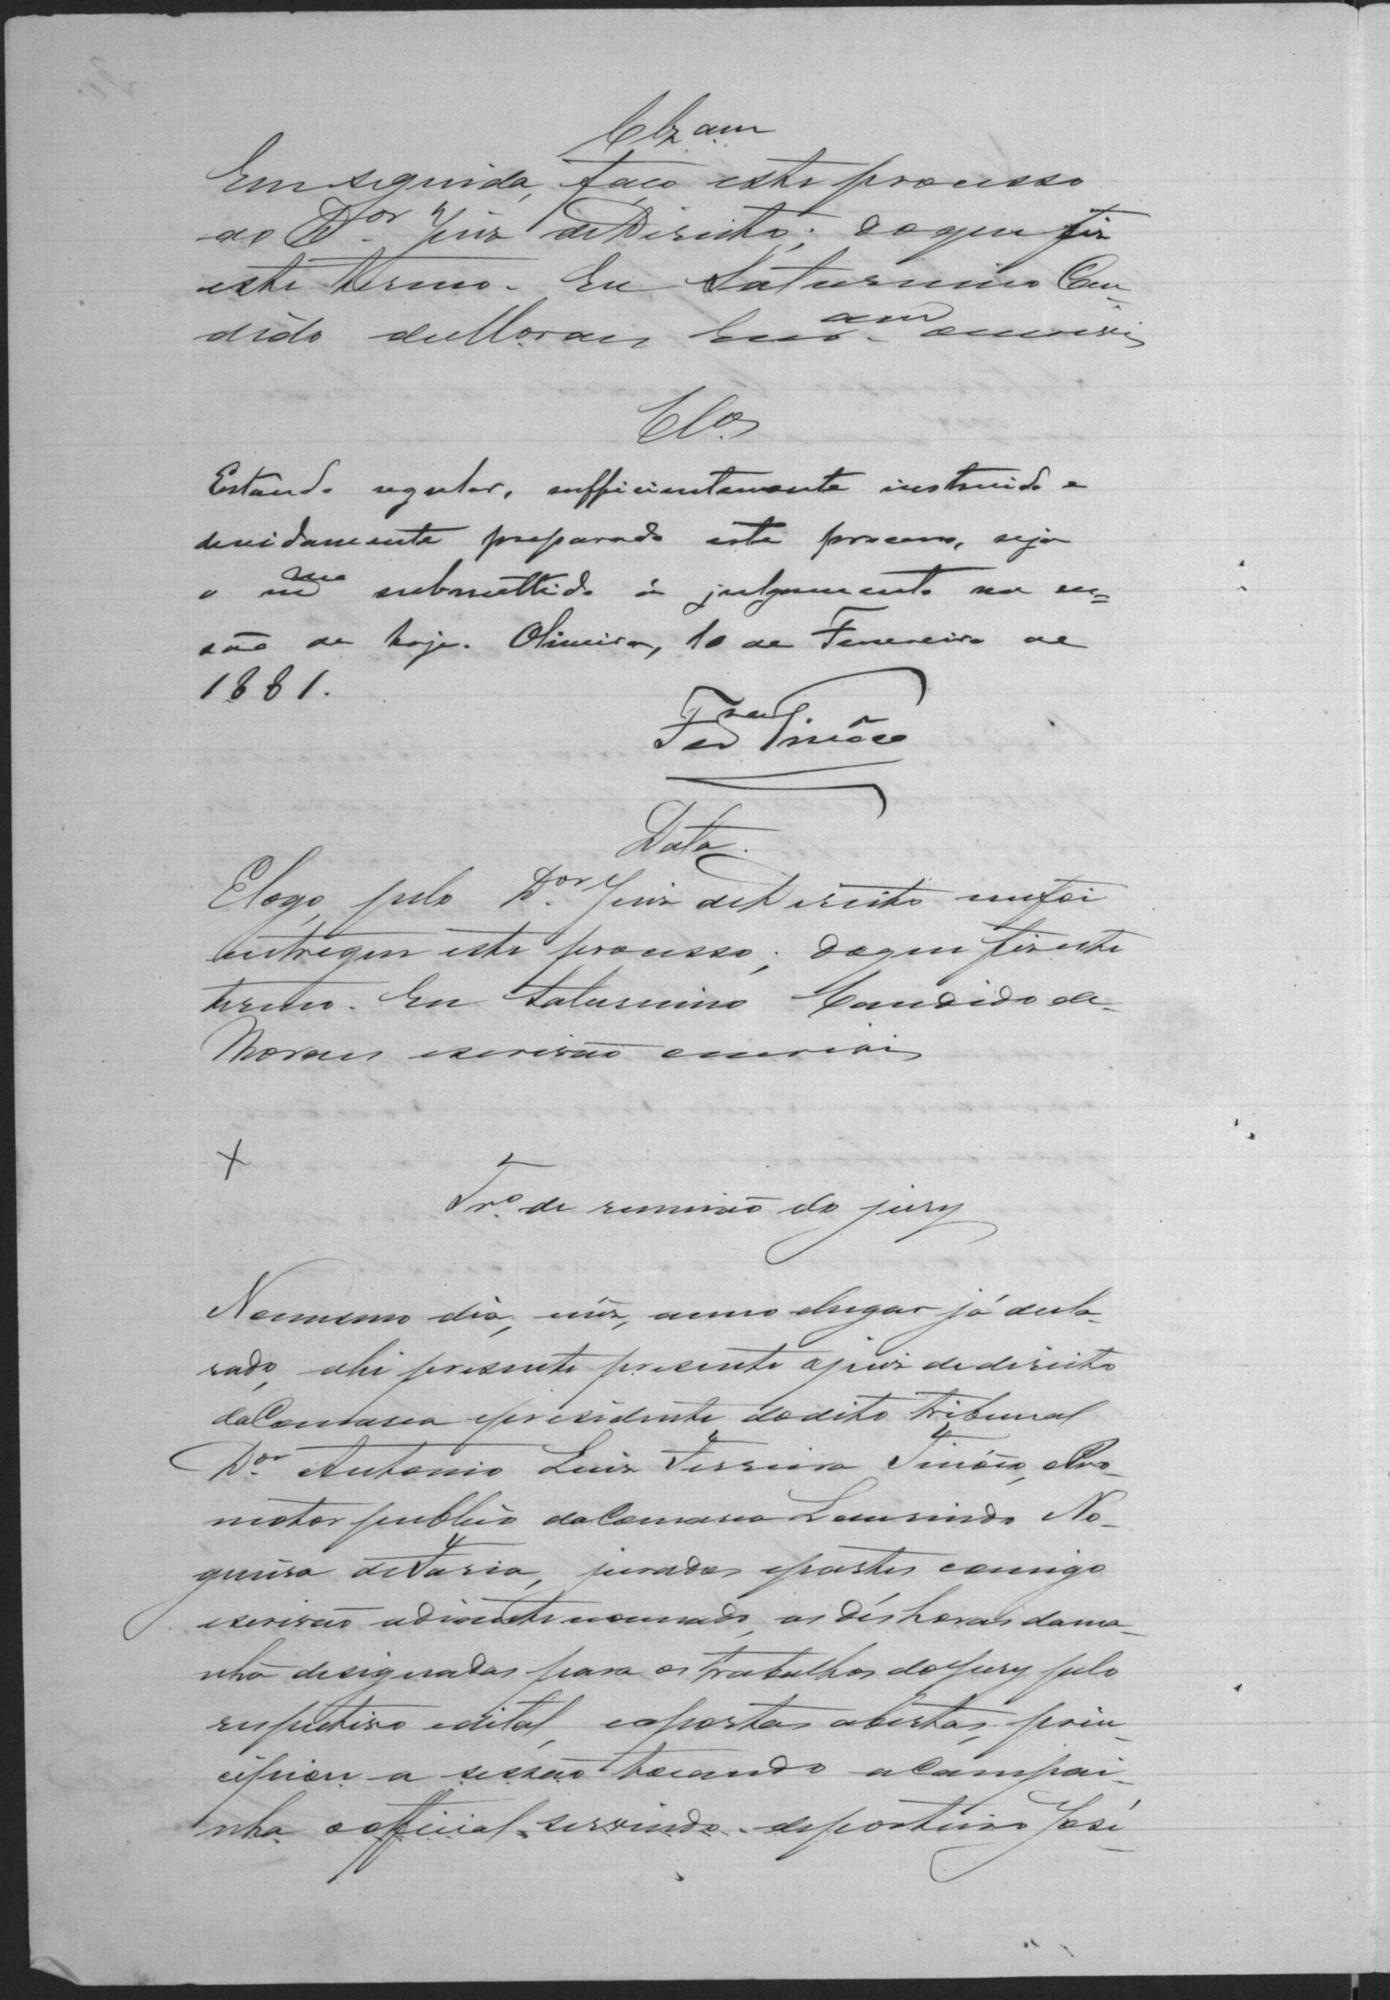 Clz.am
Em seguida, faço este processo
ao D.or Juiz deDireito; doque fiz
este termo. Eu Saturnino Can-
dido deMoraes Escr.am escrevi
Cl.os
Estando regular, sufficientemente instruido e
devidamente preparado este processo, seja
o mmo submettido á julgamento na ses=
são de hoje. Oliveira, 10 de Fevereiro de
1881.
Ferra Tinôco
Data.
Elogo, pelo D.or Juiz deDireito mefoi
entregue este processo; doque fiz este
termo. Eu Saturnino Candido de-
Moraes escrivão escrevi
Tr.o de reunião do jury
Nomesmo dia, mez, anno elugar já decla-
rado, ahi presente presente ojuiz dedireito
daComarca epresidente dodito tribunal
D.or Antonio Luiz Ferreira Tinôco, oPro-
motor publico daComarca Leursindo No-
gueira deFaria, jurados epartes comigo
escrivão adiante nomeado, as dés horas dama-
nhã designadas para os trabalhos doJury pelo
respectivo edital, eaportas abertas, prin-
cipiou a sessão tocando aCampai-
nha oofficial servindo deporteiro José